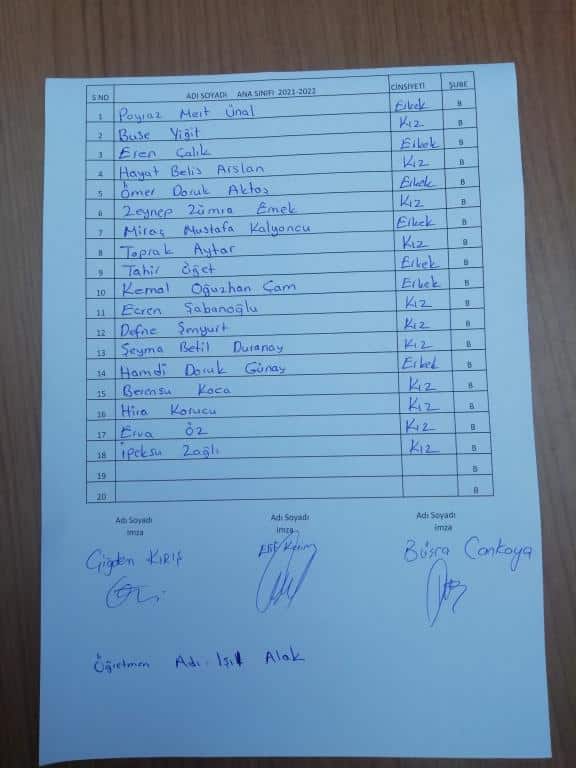 S NO ADI SOYADI ANA SINIFI 2021-2022 CİNSİYETİ ŞUBE
1 Poyraz Mert Ünal Erkek B
2 Buse Yiğit Kız B
3 Eren Çalık Erkek B
4 Hayat Belis Arslan Kız B
5 Ömer Doruk Aktaş Erkek B
6 Zeynep Zümra Emek Kız B
7 Miraç Mustafa Kalyoncu Erkek B
8 Toprak Aytar Kız B
9 Tahir Öğet Erkek B
10 Kemal Oğuzhan Çam Erkek B
11 Ecren Şabanoğlu Kız B
12 Defne Kız B
13 Şeyma Betil Duranay Kız B
14 Hamdi Doruk Günay Erkek B
15 Berensu Koca Kız B
16 Hira Korucu Kız B
17 Erva Öz Kız B
18 İpeksu Zağlı Kız B
19 B
20 B
Adı Soyadı Adı Soyadı Adı Soyadı
imza imza imza
Çiğdem Elif Büşra Cankaya
Öğretmen Adı: Işıl Alak